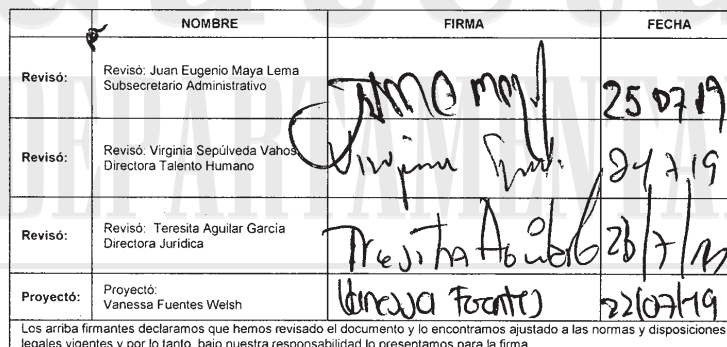 NOMBRE FIRMA FECHA
Revisó: Revisó: Juan Eugenio Maya Lema
Subsecretario Administrativo
25 07 19
Revisó: Revisó: Virginia Sepúlveda Vahos
Directora Talento Humano
Virginia
24 7 19
Revisó: Revisó: Teresita Aguilar García
Directora Jurídica
Teresita Aguilar
Proyectó: Proyectó:
Vanessa Fuentes Welsh
Vanessa Fuentes 22/07/19
Los arriba firmantes declaramos que hemos revisado el documento y lo encontramos ajustado a las normas y disposiciones
legales vigentes y por lo tanto, bajo nuestra responsabilidad lo presentamos para la firma.
DEPARTAMENTA